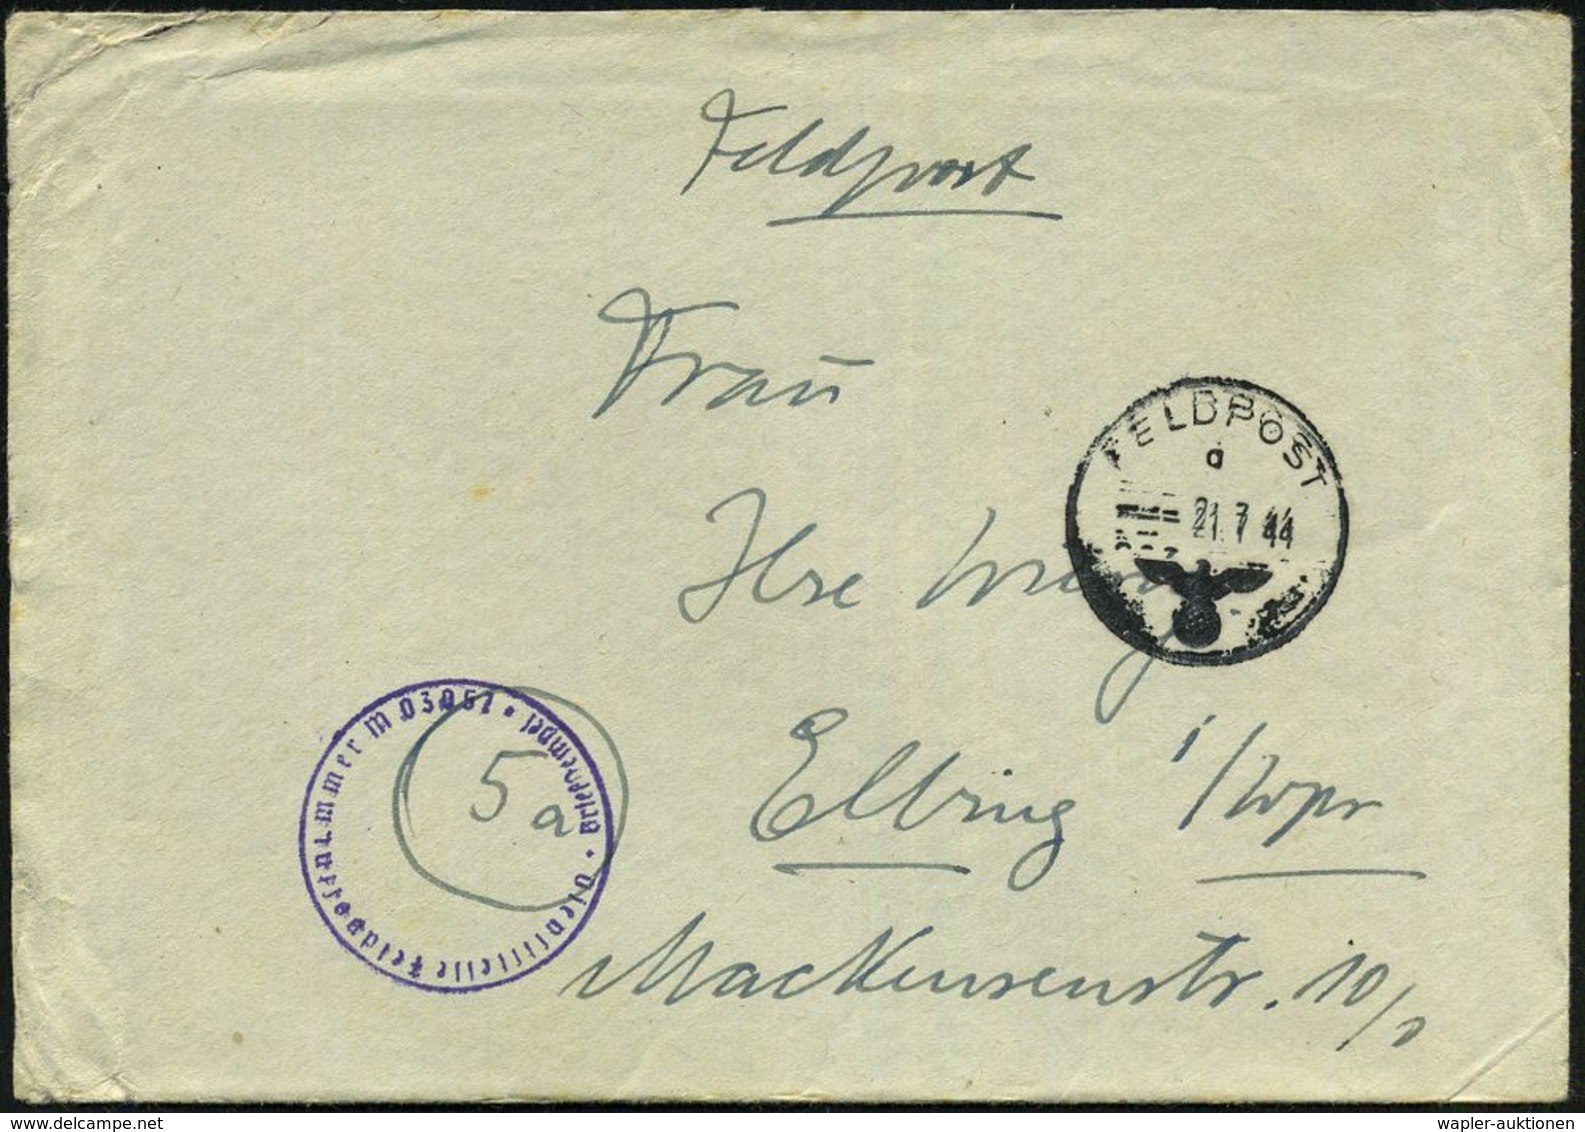 Feldpost
Frau
FELDPOST
a
21.7.44
Ilse
Elbing i/Wpr
5a
Dienststelle Feldpostnummer M 03051 * Briefstempel *
Mackensenstr. 10/
delcampe.net
wapler-auktionen